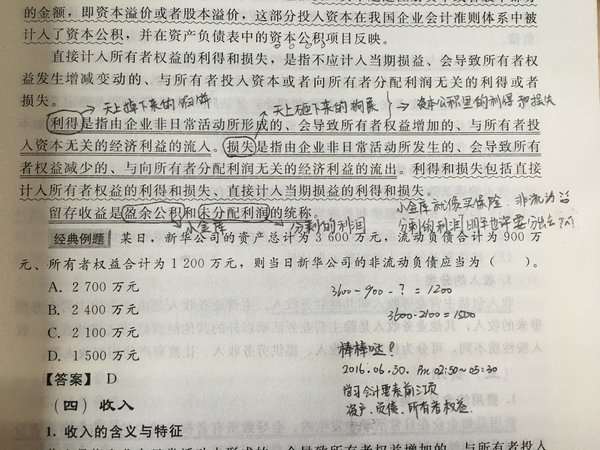 的金额，即资本溢价或者股本溢价，这部分投入资本在我国企业会计准则体系中被
计入了资本公积，并在资产负债表中的资本公积项目反映。
直接计入所有者权益的利得和损失，是指不应计入当期损益、会导致所有者权
益发生增减变动的、与所有者投入资本或者向所有者分配利润无关的利得或者
损失。
天上掉下来的馅饼
天上砸下来的
资本公积里的利得和损失
利得是指由企业非日常活动所形成的、会导致所有者权益增加的、与所有者投
入资本无关的经济利益的流入。损失是指由企业非日常活动所发生的、会导致所有
者权益减少的、与向所有者分配利润无关的经济利益的流出。利得和损失包括直接
计入所有者权益的利得和损失、直接计入当期损益的利得和损失。
留存收益是盈余公积和未分配利润的统称。
小金库
分剩的利润
小金库就像买保险
分剩的利润明年也许要
经典例题 某日，新华公司的资产总计为 3 600 万元，流动负债合计为 900 万
元、所有者权益合计为 1 200 万元，则当日新华公司的非流动负债应当为（ ）。
A. 2 700 万元
B. 2 400 万元
C. 2 100 万元
D. 1 500 万元
3600-900-?=1200
3600-2100=1500
棒棒哒？
2016.06.30. Pm 02:50-05:30
学习会计要素前三项
资产、负债、所有者权益
【答案】 D
（四）收入
1. 收入的含义与特征